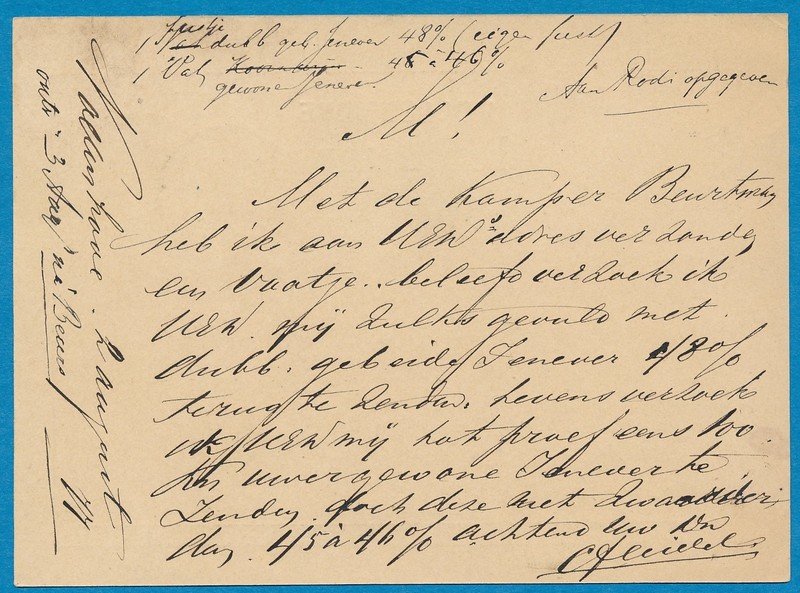 1 Fustje dubb geb. Jenever 48% (eigen fust)
1 Vat Korenwijn 45 à 46%
gewone Jenever.
Aan Rodi opgegeven
M!
Met de Kamper Beurtman
heb ik aan UEWs adres verzonden
een vaatje. beleefd verzoek ik
UEW. mij zulks gevuld met
dubb. gebeide Jenever 48%
terug te zenden. tevens verzoek
ik UEW mij tot proef eens 100
uwer gewone Jenever te
zenden doch deze niet zwaarder
dan 45 à 46% achtend uw Dn
2 August
77
ontv 3 Aug na Beurs